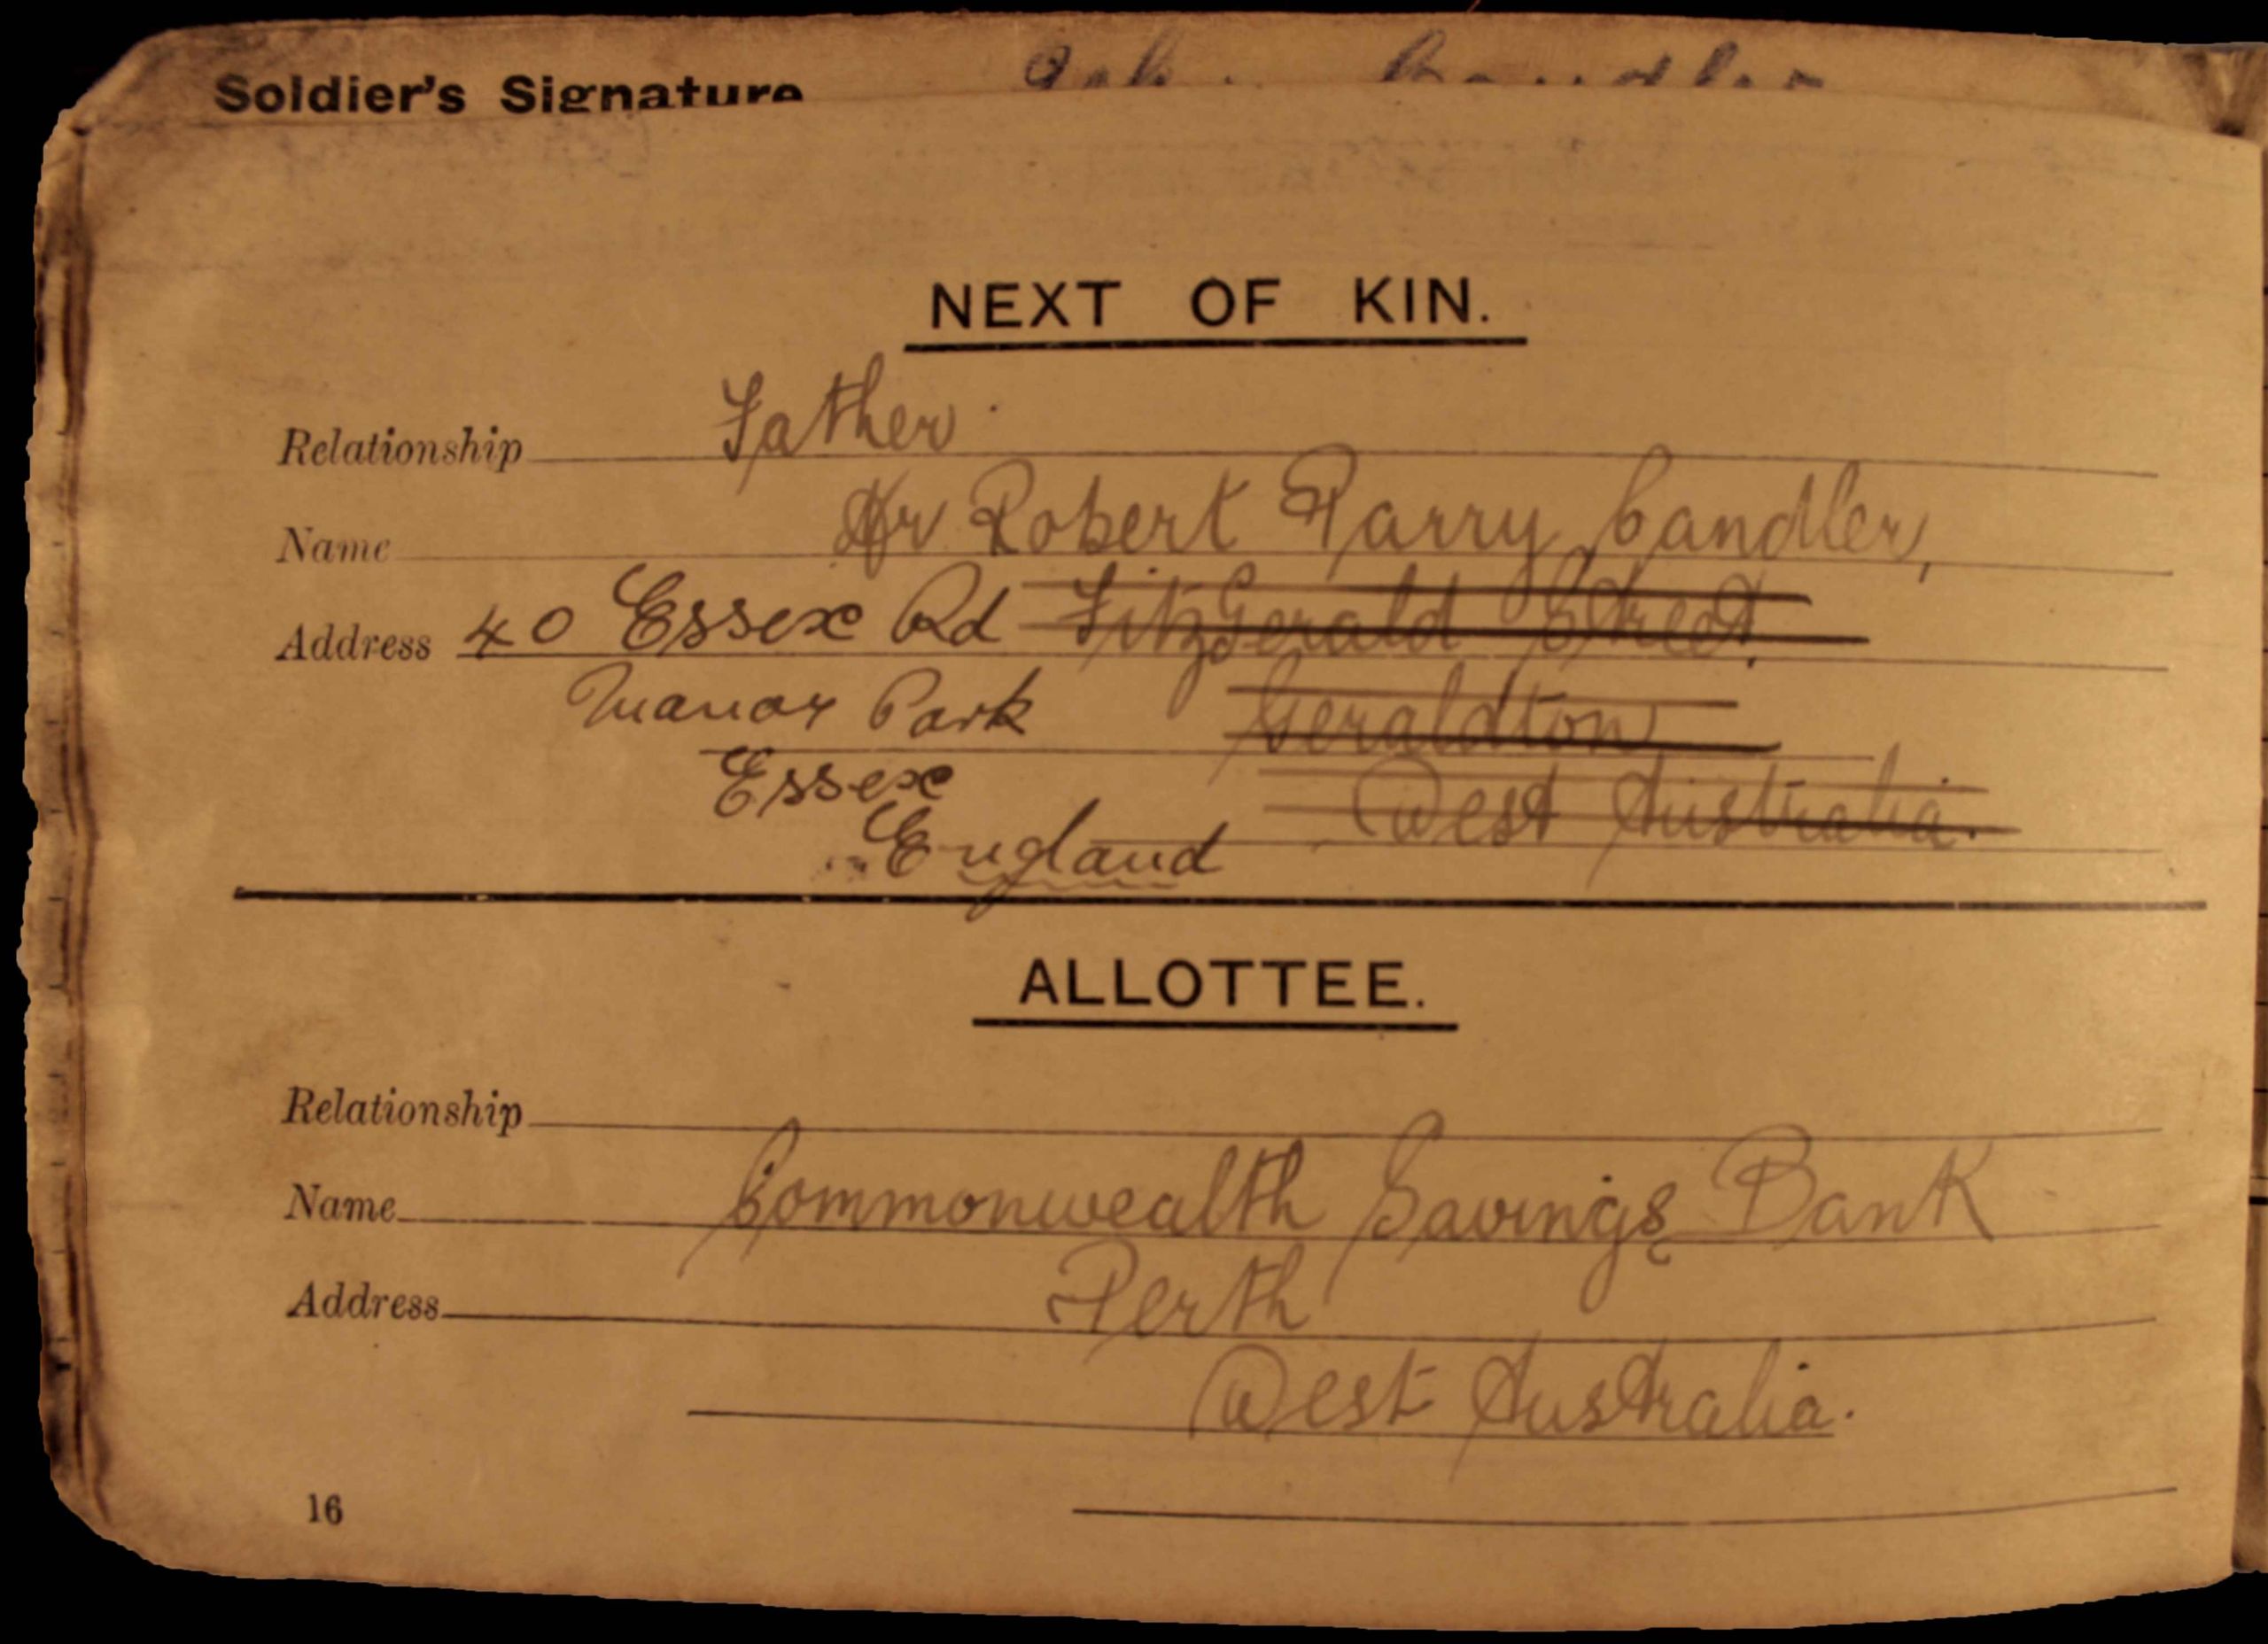 Soldier's Signature
NEXT OF KIN.
Relationship Father.
Name Mr Robert Parry Candler,
Address 40 Essex Rd FitzGerald Street.
Manor Park Geraldton
Essex West Australia.
England
ALLOTTEE.
Relationship
Name Commonwealth Savings Bank
Address Perth
West Australia.
16